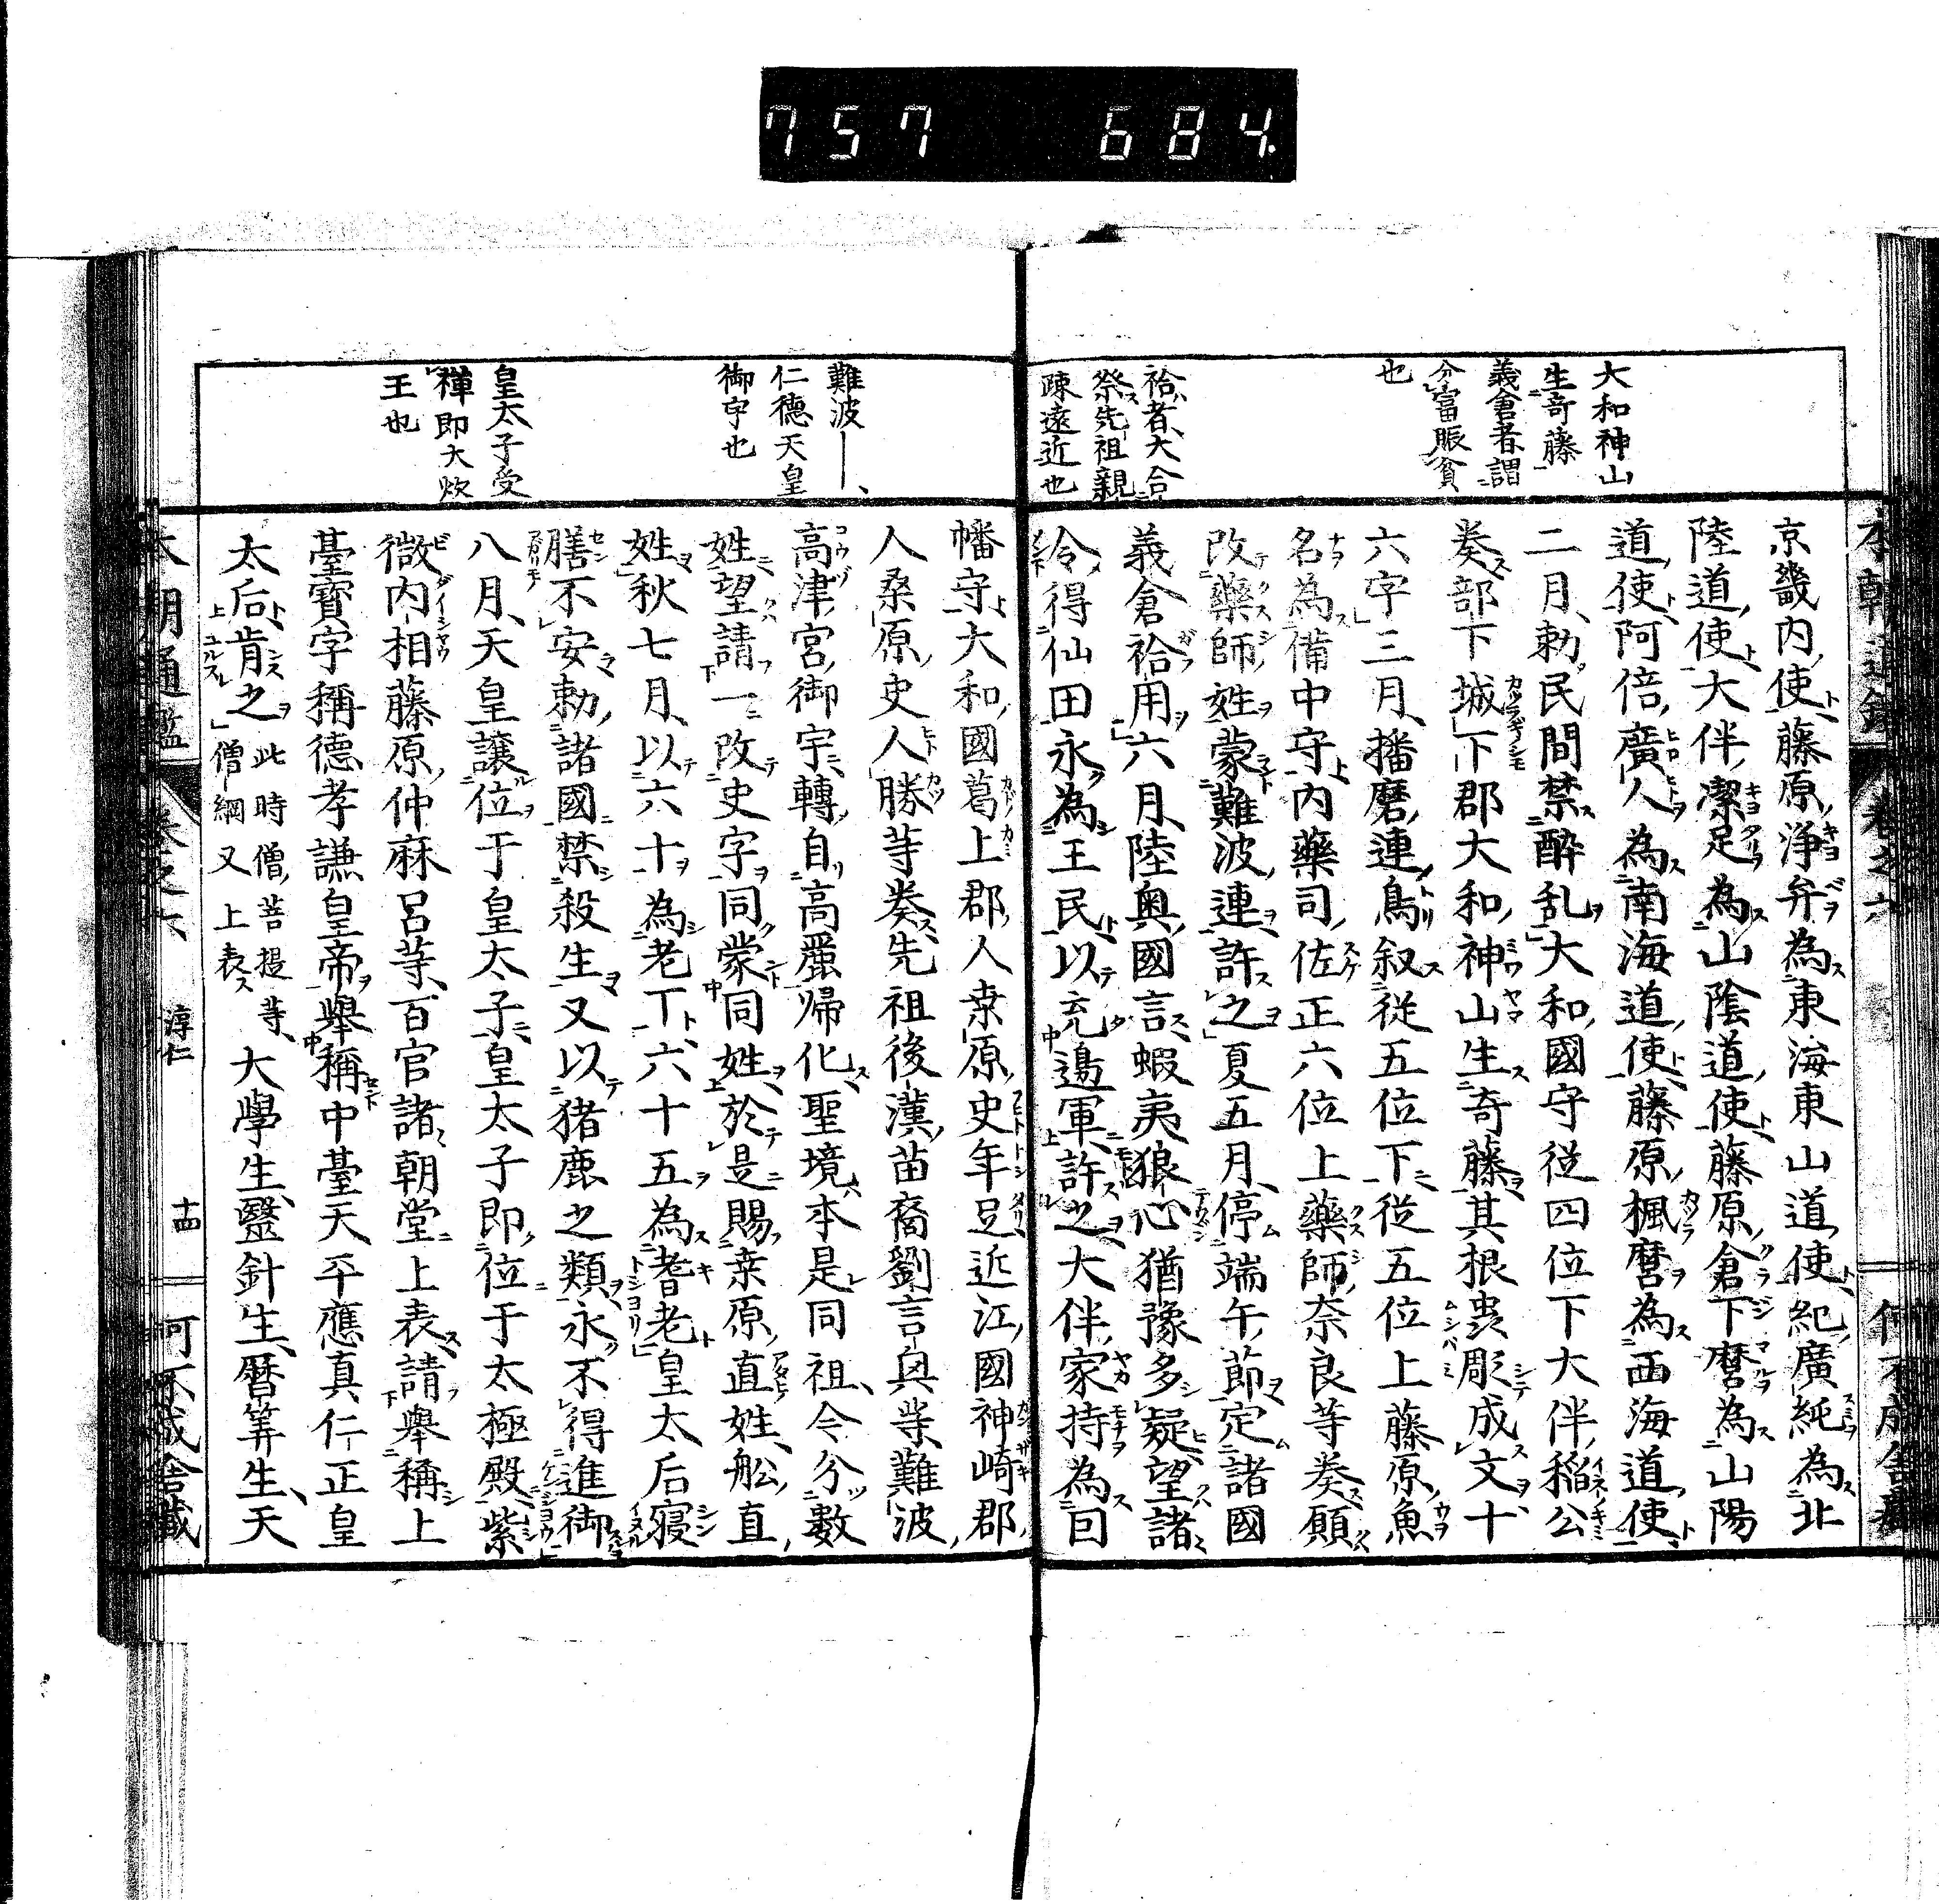 757 684
大和神山
生奇藤
義倉者謂
分富賑貧
也
祫者大合
祭先祖親
疎遠近也
京畿內使藤原淨弁為東海東山道使紀廣純為北
陸道使大伴潔足為山陰道使藤原倉下麿為山陽
道使阿倍廣人為南海道使藤原楓麿為西海道使
二月勅民間禁醉乱大和國守従四位下大伴稲公
奏部下城下郡大和神山生奇藤其根蟲彫成文十
六字三月播磨連鳥叙従五位下従五位上藤原魚
名為備中守內藥司佐正六位上藥師奈良等奏願
改藥師姓蒙難波連許之夏五月停端午節定諸國
義倉祫用六月陸奥國言蝦夷狼心猶豫多疑望諸
令得仙田永為王民以充邉軍許之大伴家持為囙
難波――
仁德天皇
御宇也
皇太子受
禅即大炊
王也
幡守大和國葛上郡人桒原史年足近江國神崎郡
人桑原史人勝等奏先祖後漢苗裔劉言與等難波
高津宮御宇轉自高麗帰化聖境本是同祖今分數
姓望請一改史字同蒙同姓於是賜桒原直姓舩直
姓秋七月以六十為老丁六十五為耆老皇太后寝
膳不安勅諸國禁殺生又以猪鹿之類永不得進御
八月天皇譲位于皇太子皇太子即位于太極殿紫
微內相藤原仲麻呂等百官諸朝堂上表請舉稱上
臺寶字稱德孝謙皇帝舉稱中臺天平應真仁正皇
太后肯之 此時僧菩提等 僧綱又上表 大學生醫針生暦筭生天
本朝通鑑 卷之六 淳仁 十四 何不成舎藏